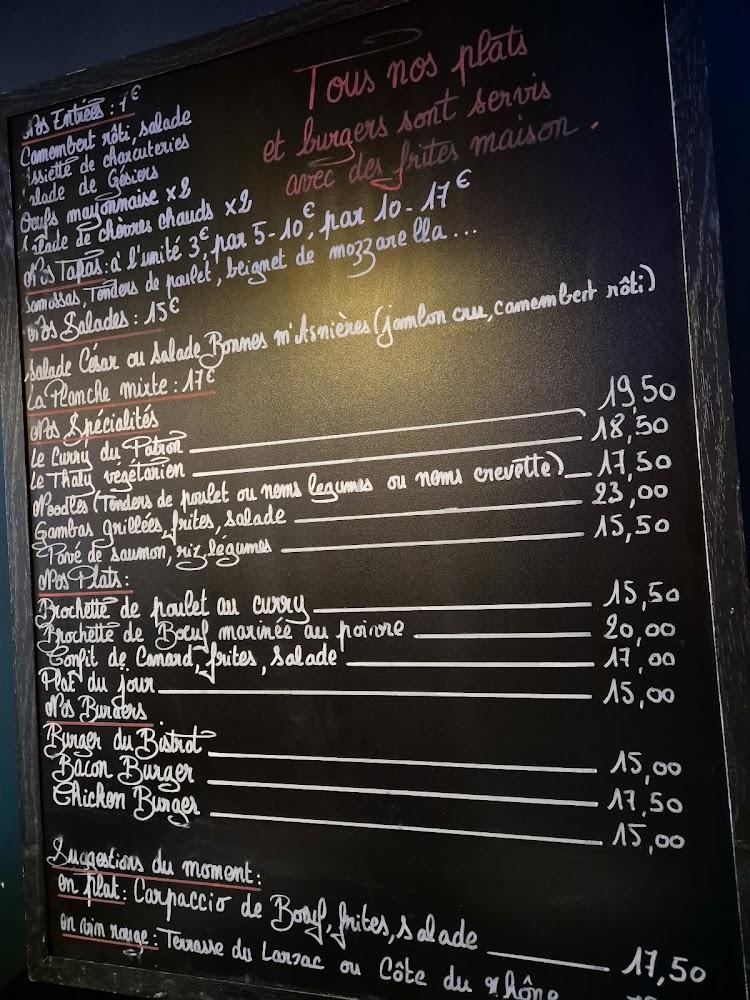 Tous nos plats
et burgers sont servis
avec des frites maison.
Nos Entrées : 7€
Camembert rôti, salade
Assiette de charcuteries
Salade de Gésiers
Oeufs mayonnaise x2
Salade de chèvres chauds x2
Nos Tapas : à l'unité 3€, par 5-10€, par 10-17€
Samossas, Tenders de poulet, beignet de mozzarella...
Nos Salades : 15€
Salade César ou Salade Bonnes m'Asnières (jambon cru, camembert rôti)
La Planche mixte : 17€
Nos Spécialités
Le Curry du Patron 19,50
Le Thaly végétarien 18,50
Noodles (Tenders de poulet ou nems legumes ou nems crevette) 17,50
Gambas grillées, frites, salade 23,00
Pavé de saumon, riz, légumes 15,50
Nos Plats :
Brochette de poulet au curry 15,50
Brochette de Boeuf marinée au poivre 20,00
Confit de Canard, frites, salade 17,00
Plat du jour 15,00
Nos Burgers
Burger du Bistrot 15,00
Bacon Burger 17,50
Chicken Burger 15,00
Suggestions du moment :
en plat : Carpaccio de Boeuf, frites, salade 17,50
en vin rouge : Terrasse du Larzac ou Côte du Rhône